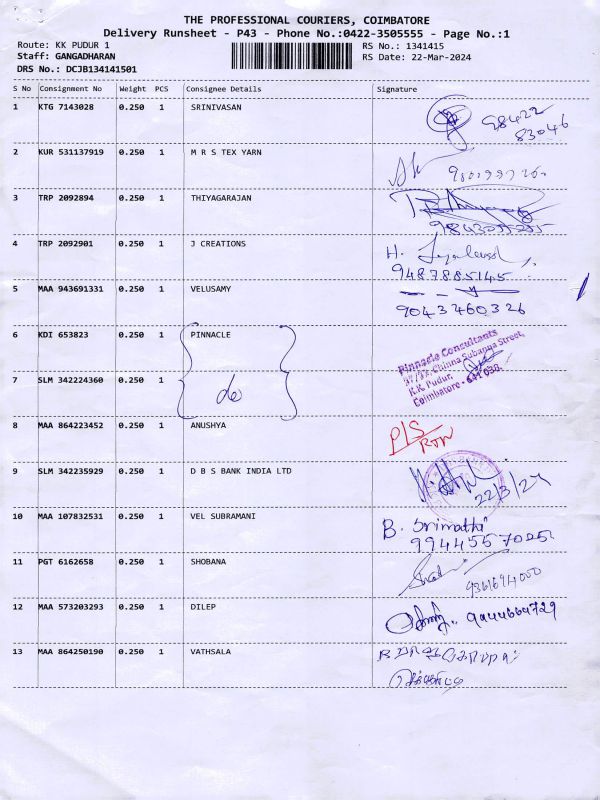 THE PROFESSIONAL COURIERS, COIMBATORE
Delivery Runsheet - P43 - Phone No.:0422-3505555 - Page No.:1
Route: KK PUDUR 1 RS No.: 1341415
Staff: GANGADHARAN RS Date: 22-Mar-2024
DRS No.: DCJB134141501
S No Consignment No Weight PCS Consignee Details Signature
1 KTG 7143028 0.250 1 SRINIVASAN 98422
83046
2 KUR 531137919 0.250 1 M R S TEX YARN
3 TRP 2092894 0.250 1 THIYAGARAJAN
4 TRP 2092901 0.250 1 J CREATIONS H.
9487885145
5 MAA 943691331 0.250 1 VELUSAMY
9043460326
6 KDI 653823 0.250 1 PINNACLE Pinnacle Consultants
37/37, Chinna Subanya Street,
K.K. Pudur,
Coimbatore - 641 038.
7 SLM 342224360 0.250 1 do
8 MAA 864223452 0.250 1 ANUSHYA P/S
RTN
9 SLM 342235929 0.250 1 D B S BANK INDIA LTD 22/3/24
10 MAA 107832531 0.250 1 VEL SUBRAMANI B. Srimathi
11 PGT 6162658 0.250 1 SHOBANA
12 MAA 573203293 0.250 1 DILEP 9944664729
13 MAA 864250190 0.250 1 VATHSALA